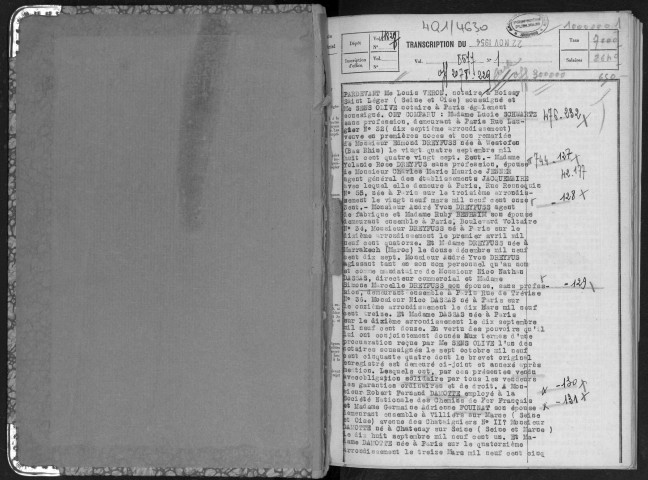 4Q1/4630
Dépôt
Vol.
N°
TRANSCRIPTION DU
22 NOV 1954
Inscription d'office
Vol.
N°
Vol.
N° 1
Taxe
Salaires
PARDEVANT Me Louis notaire à Boissy
Saint Léger ( Seine et Oise) soussigné et
Me SENS OLIVE notaire à Paris également
soussigné. ONT COMPARU : Madame Lucie SCHWARTZ
sans profession, demeurant à Paris Rue
N° 22 ( dix septième arrondissement)
veuve en premières noces et non remariée
de Monsieur Edmond DREYFUSS née à Westofen
(Bas Rhin) le vingt quatre septembre mil
huit cent quatre vingt sept. 2ent.- Madame
Yolande Rose DREYFUS sans profession, épouse
de Monsieur Charles Marie Maurice
agent général des établissements
avec lequel elle demeure à Paris, Rue Rennequin
N° 68, née à Paris sur le troisième arrondis-
sement le vingt neuf mars mil neuf cent onze
3ent.- Monsieur André Yvon DREYFUSS agent
de fabrique et Madame Ruby son épouse
demeurant ensemble à Paris, Boulevard Voltaire
N° 34, Monsieur DREYFUSS né à Paris sur le
dixième arrondissement le premier avril mil
neuf cent quatorze. Et Mme DREYFUSS née à
Marrakech (Maroc) le douze décembre mil neuf
cent dix sept. Monsieur André Yvon DREYFUS
agissant tant en son nom personnel qu'au nom
et comme mandataire de Monsieur Nico Nathan
DASSAS, directeur commercial et Madame
Simone Marcelle DREYFUSS son épouse, sans profes-
sion, demeurant ensemble à Paris Rue de Trévise
N° 34. Monsieur Nico DASSAS né à Paris sur
le onzième arrondissement le dix Mars mil neuf
cent treize. Et Madame DASSAS née à Paris
sur le dixième arrondissement le dix septembre
mil neuf cent douze. En vertu des pouvoirs qu'il
lui ont conjointement donnés aux termes d'une
procuration reçue par Me SENS OLIVE l'un des
notaires soussignés le sept octobre mil neuf
cent cinquante quatre dont le brevet original
enregistré est demeuré ci-joint et annexé après
mention. Lesquels ont, par ces présentes vendu
avec obligation solidaire par tous les vendeurs
des garanties ordinaires et de droit. A Mon-
sieur Robert Fernand DAMOTTE employé à la
Société Nationale des Chemins de Fer Français
et Madame Germaine Adrienne POUINAT son épouse
demeurant ensemble à Villiers sur Marne ( Seine
et Oise) avenue des Chataigniers N° 117 Monsieur
DAMOTTE né à Chatenay sur Seine ( Seine et Marne )
le dix huit septembre mil neuf cent un. Et Ma-
dame DAMOTTE née à Paris sur le quatorzième
arrondissement le treize Mars mil neuf cent cinq
476-282 x
744-127 x
42.177
-128 x
-129 x
x -130 x
x -131 x